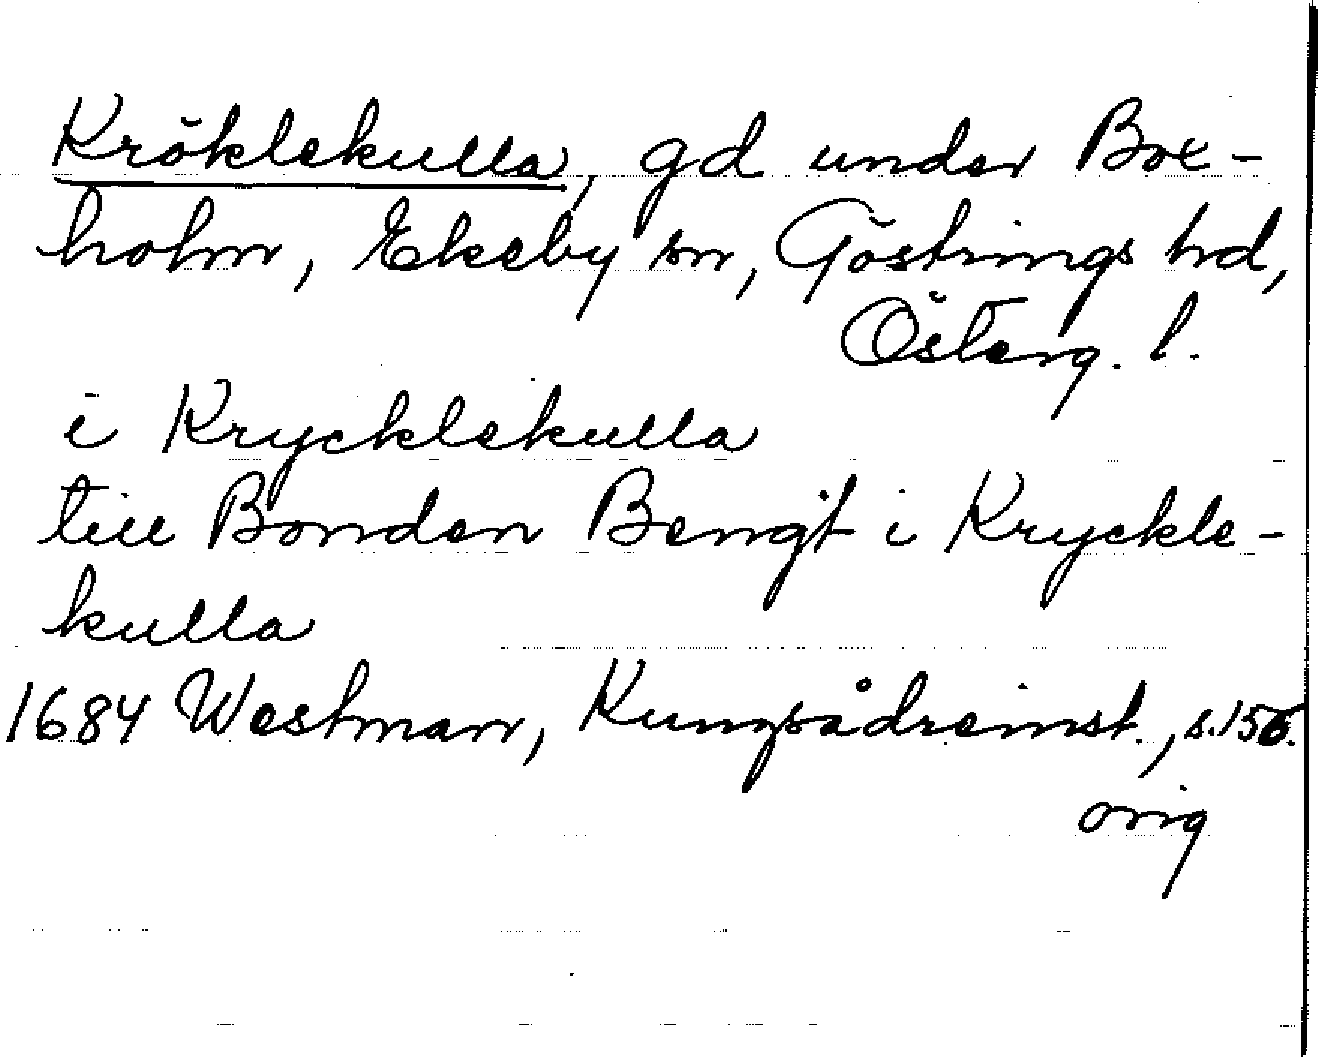 Kröklekulla, gd under Box-
holm, Ekeby sn, Göstrings hd,
Österg. l.
i Krycklekulla
till Bonden Bengt i Kryckle-
kulla
1684 Westman, Kungsådreinst., s. 156.
orig